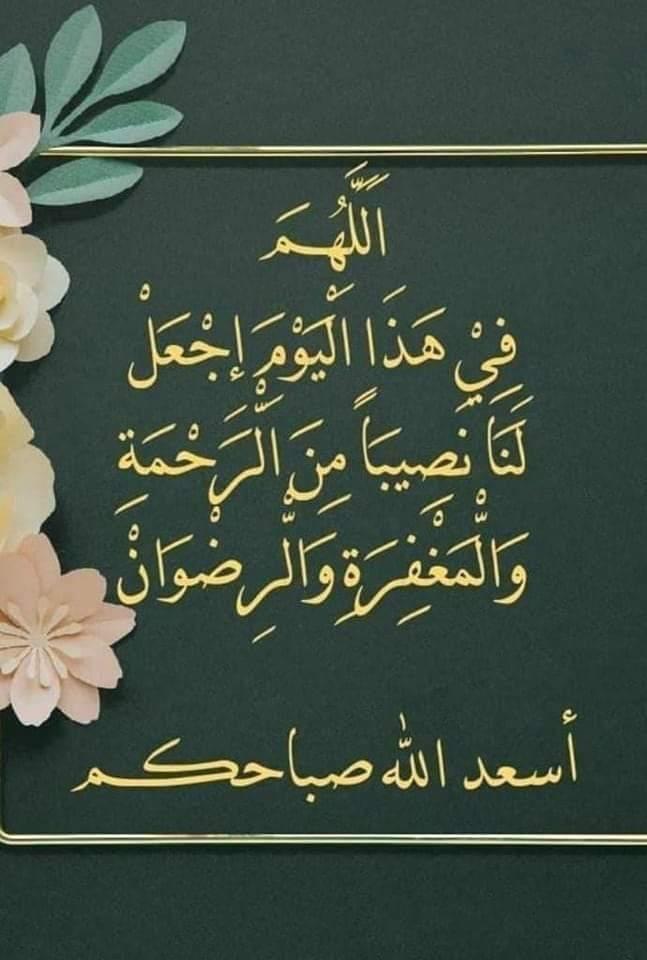 اللَّهُمَ
فِيْ هَذَا الْيَوْمَ إجْعَلْ
لَنَا نَصِيبَاً مِنَ الْرَحْمَةِ
وَالْمَغْفِرَةِ وَالْرِضْوَانْ
أسعد الله صباحكم